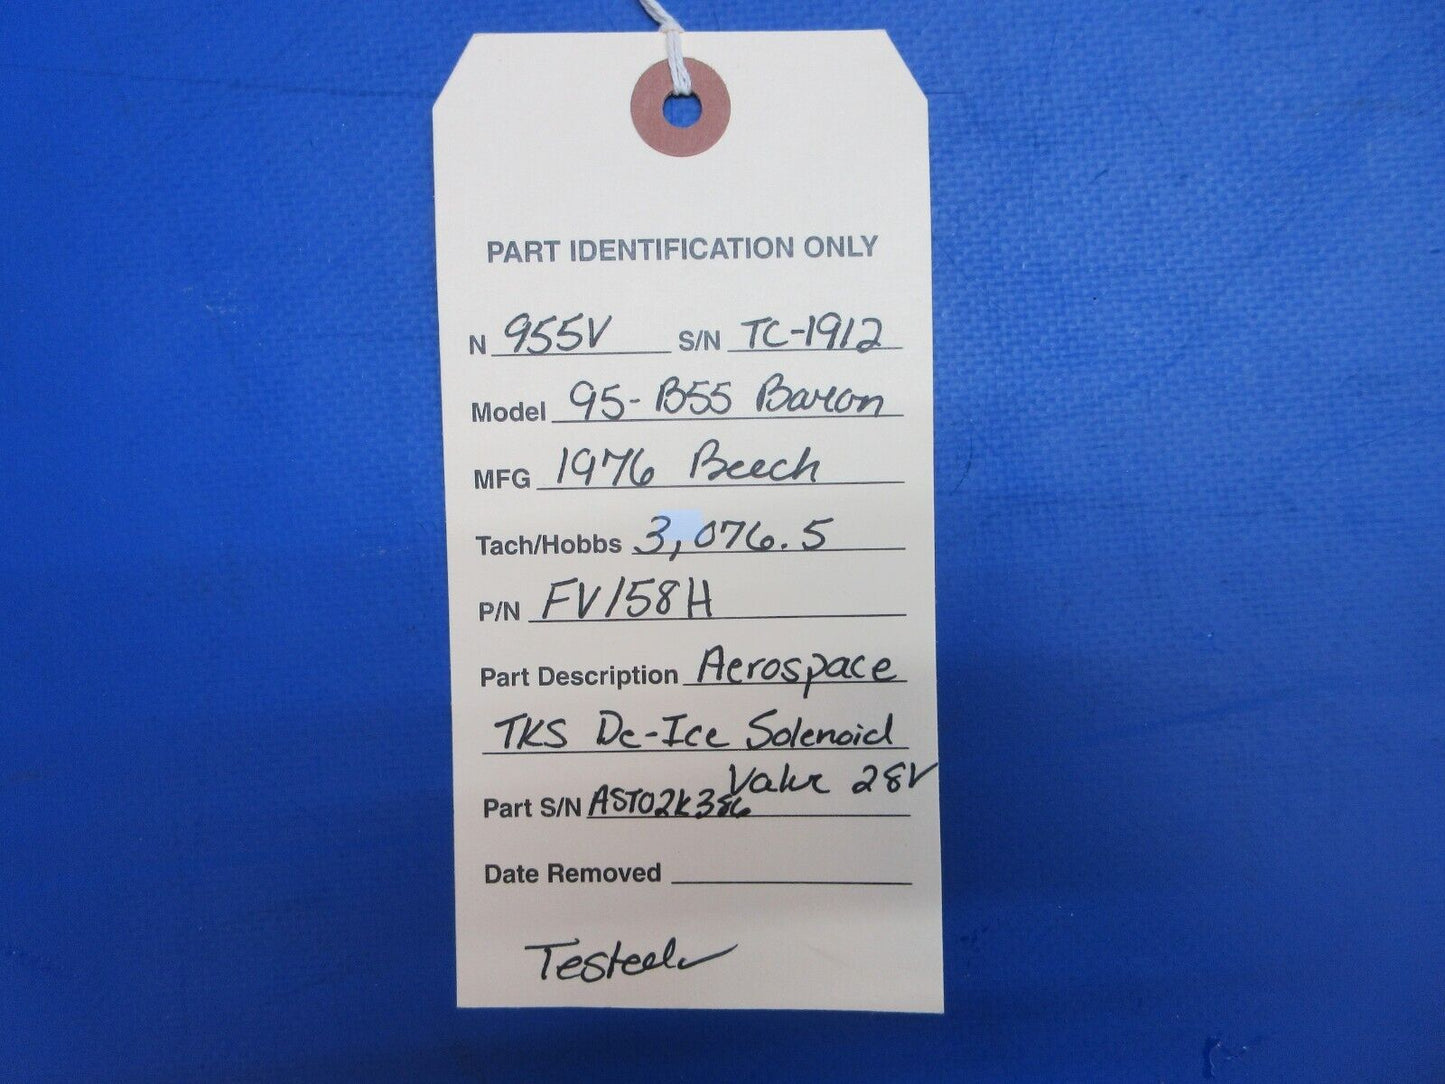 PART IDENTIFICATION ONLY
N 955V S/N TC-1912
Model 95-B55 Baron
MFG 1976 Beech
Tach/Hobbs 3,076.5
P/N FV158H
Part Description Aerospace
TKS De-Ice Solenoid
Valve 28V
Part S/N AST02K386
Date Removed
Tested